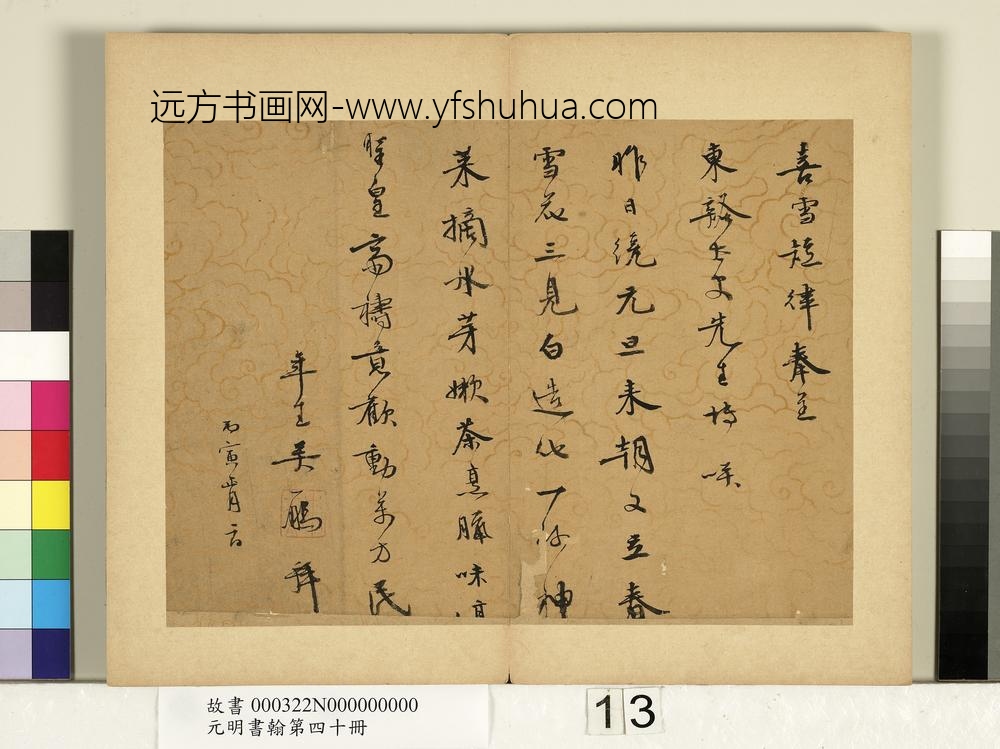 远方书画网-www.yfshuhua.com
喜雪短律奉呈
東谿先生博咲
昨日纔元旦来朝又立春
雪花三見白造化一何神
菜摘氷芽嫩茶烹臘味
聖皇齋禱意歡動萬方民
年生吳鵬拜
丙寅肖月言
故書 000322N000000000
元明書翰第四十冊
13